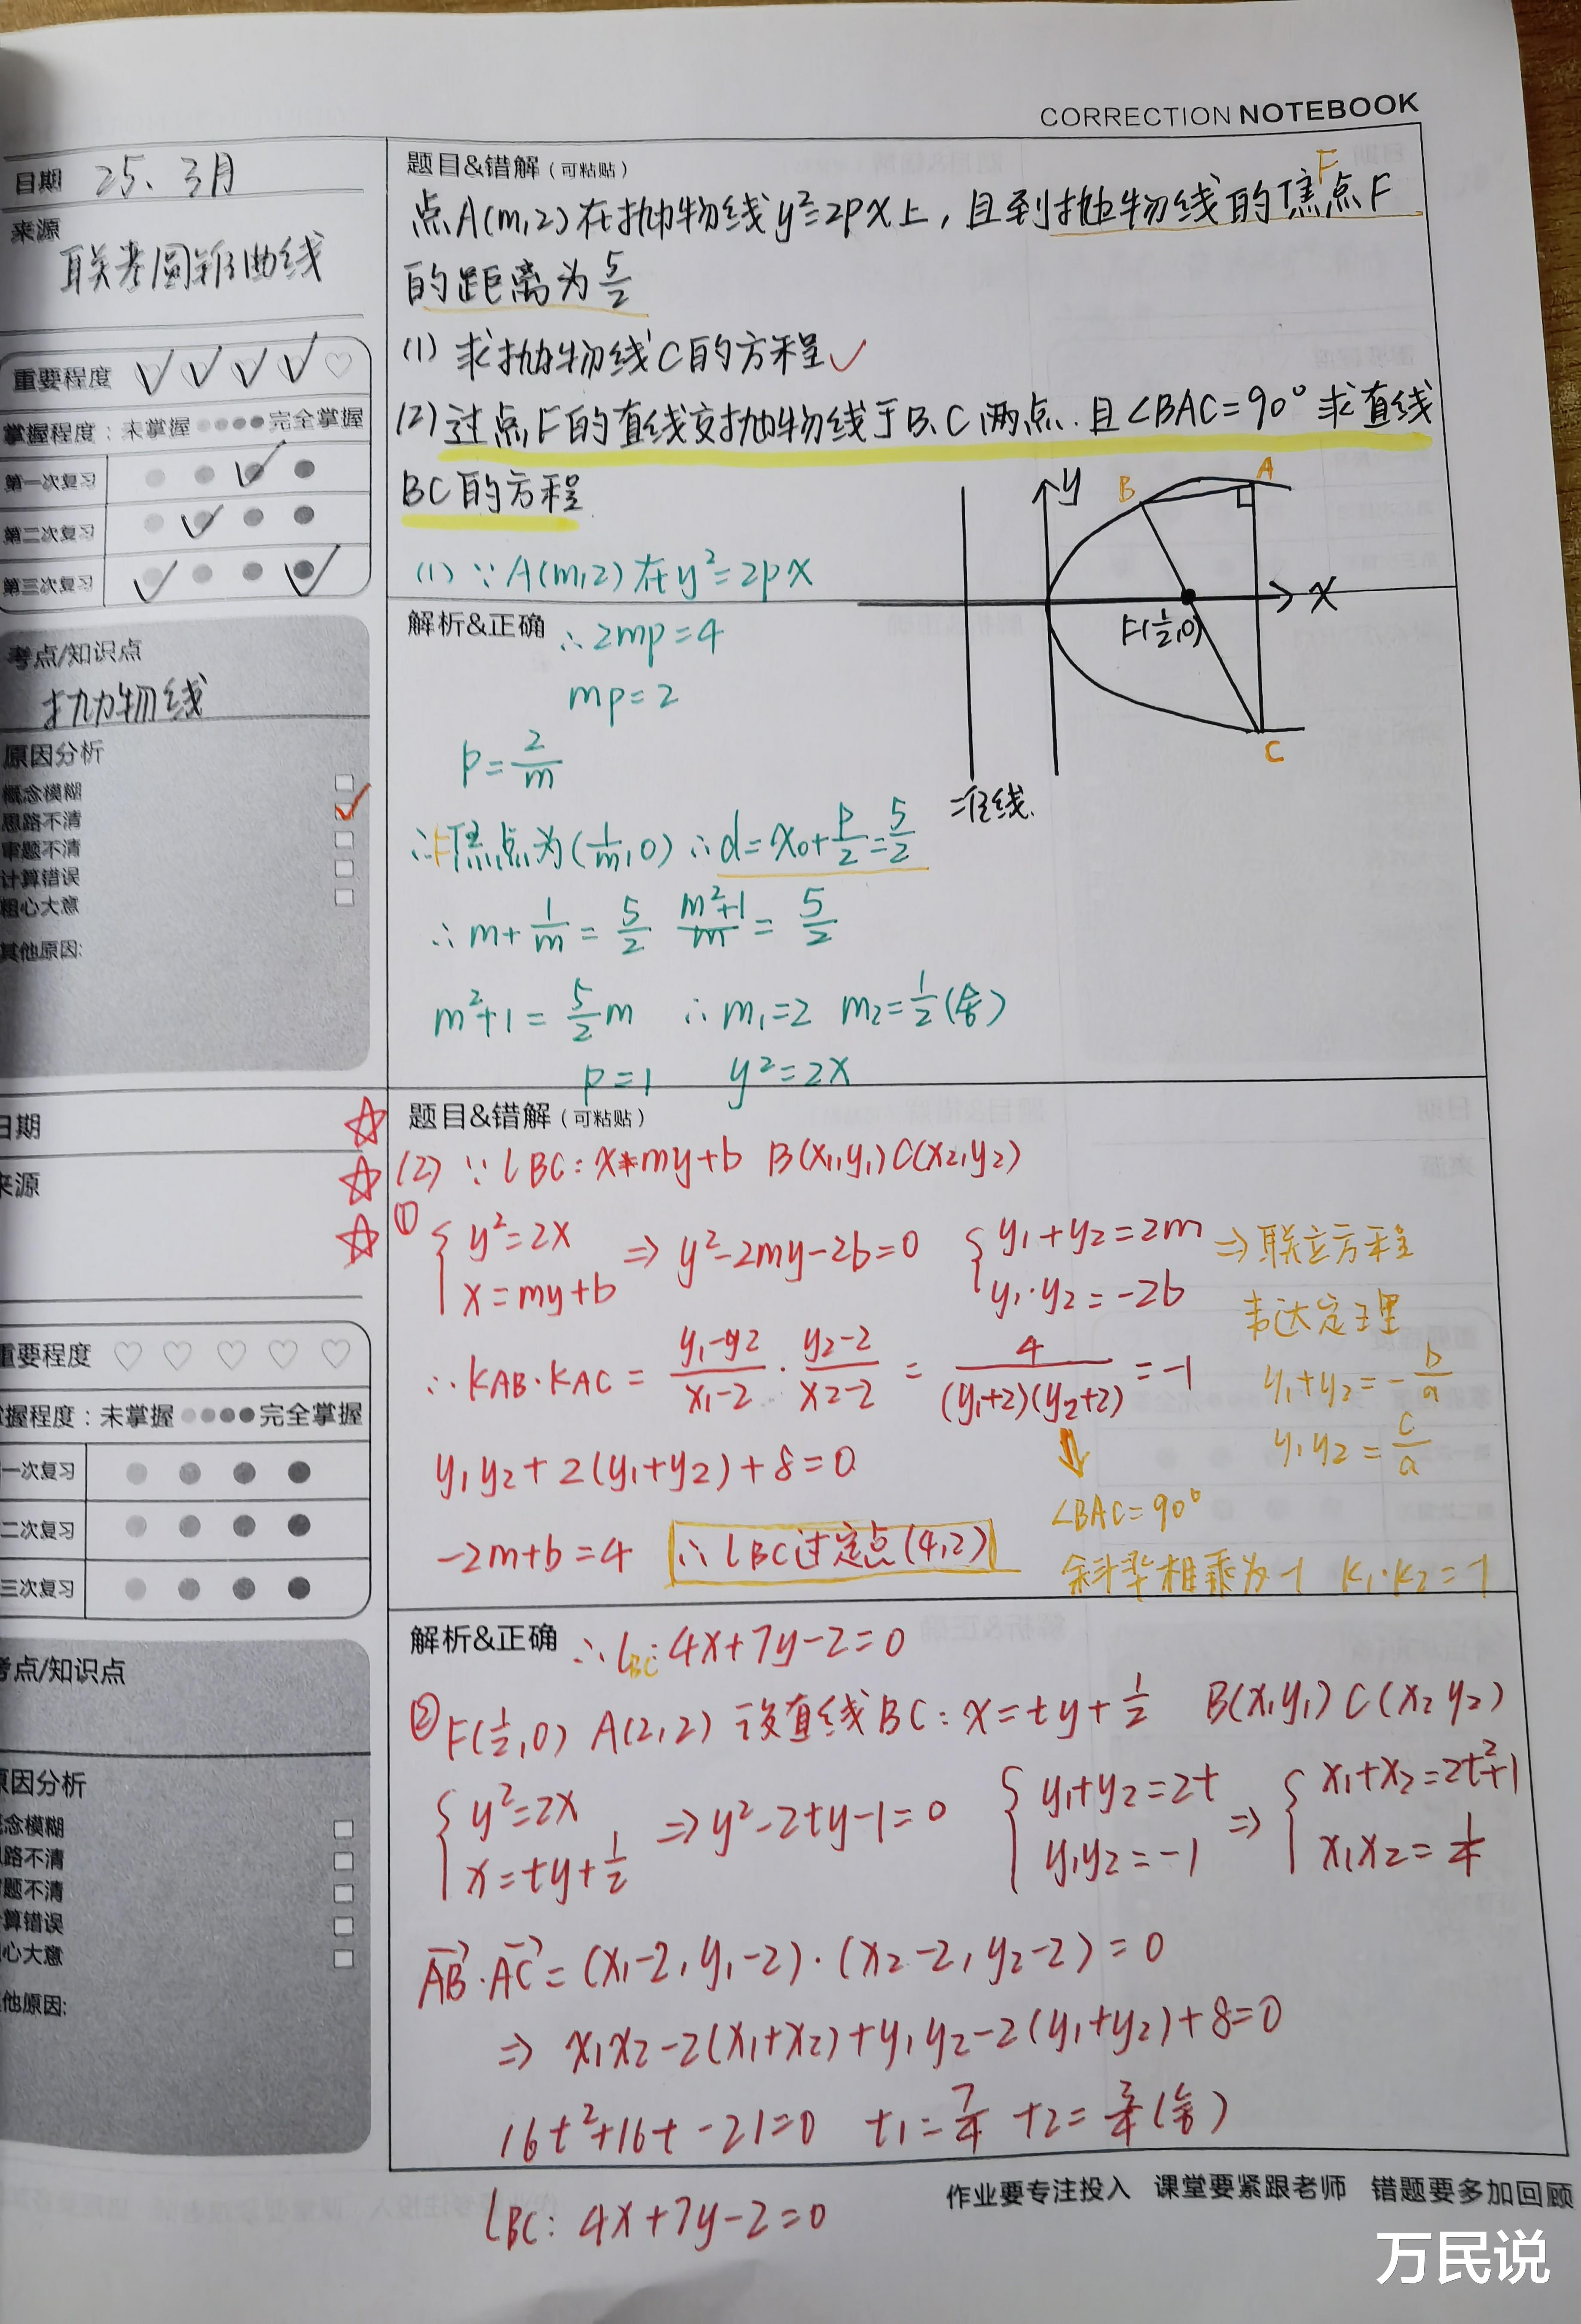 CORRECTION NOTEBOOK
日期 25、3月
来源
联考圆锥曲线
重要程度
掌握程度：未掌握 完全掌握
第一次复习
第二次复习
第三次复习
考点/知识点
抛物线
原因分析
概念模糊
思路不清
审题不清
计算错误
粗心大意
其他原因:
题目&错解（可粘贴）
F
点A(m,2)在抛物线y²=2px上，且到抛物线的焦点F
的距离为5/2
(1) 求抛物线C的方程✓
(2) 过点F的直线交抛物线于B、C两点.且∠BAC=90° 求直线
BC的方程
y
B
A
x
F(1/2,0)
C
准线.
(1) ∵A(m,2)在y²=2px
解析&正确 ∴2mp=4
mp=2
p=2/m
∴焦点为(1/m,0) ∴d=x₀+p/2=5/2
∴m+1/m=5/2 (m²+1)/m=5/2
m²+1=5/2m ∴m₁=2 m₂=1/2(舍)
p=1 y²=2x
日期
来源
重要程度
掌握程度：未掌握 完全掌握
一次复习
二次复习
三次复习
考点/知识点
原因分析
念模糊
路不清
题不清
算错误
心大意
他原因:
题目&错解（可粘贴）
(2) ∵l BC: x=my+b B(x₁,y₁) C(x₂,y₂)
① { y²=2x x=my+b ⇒ y²-2my-2b=0 { y₁+y₂=2m y₁·y₂=-2b ⇒联立方程
韦达定理
y₁+y₂=-b/a
y₁y₂=c/a
∴kAB·kAC=(y₁-y2)/(x₁-2)·(y₂-2)/(x₂-2)=4/((y₁+2)(y₂+2))=-1
y₁y₂+2(y₁+y₂)+8=0
∠BAC=90°
斜率相乘为-1 k₁·k₂=-1
-2m+b=4 ∴l BC过定点(4,2)
解析&正确 ∴l BC: 4x+7y-2=0
② F(1/2,0) A(2,2) 设直线BC: x=ty+1/2 B(x₁y₁) C(x₂y₂)
{ y²=2x x=ty+1/2 ⇒y²-2ty-1=0 { y₁+y₂=2t y₁y₂=-1 ⇒ { x₁+x₂=2t²+1 x₁x₂=1/4
AB·AC=(x₁-2,y₁-2)·(x₂-2,y₂-2)=0
⇒ x₁x₂-2(x₁+x₂)+y₁y₂-2(y₁+y₂)+8=0
16t²+16t-21=0 t₁=7/4 t2=3/4(舍)
l BC: 4x+7y-2=0
作业要专注投入 课堂要紧跟老师 错题要多加回顾
万民说